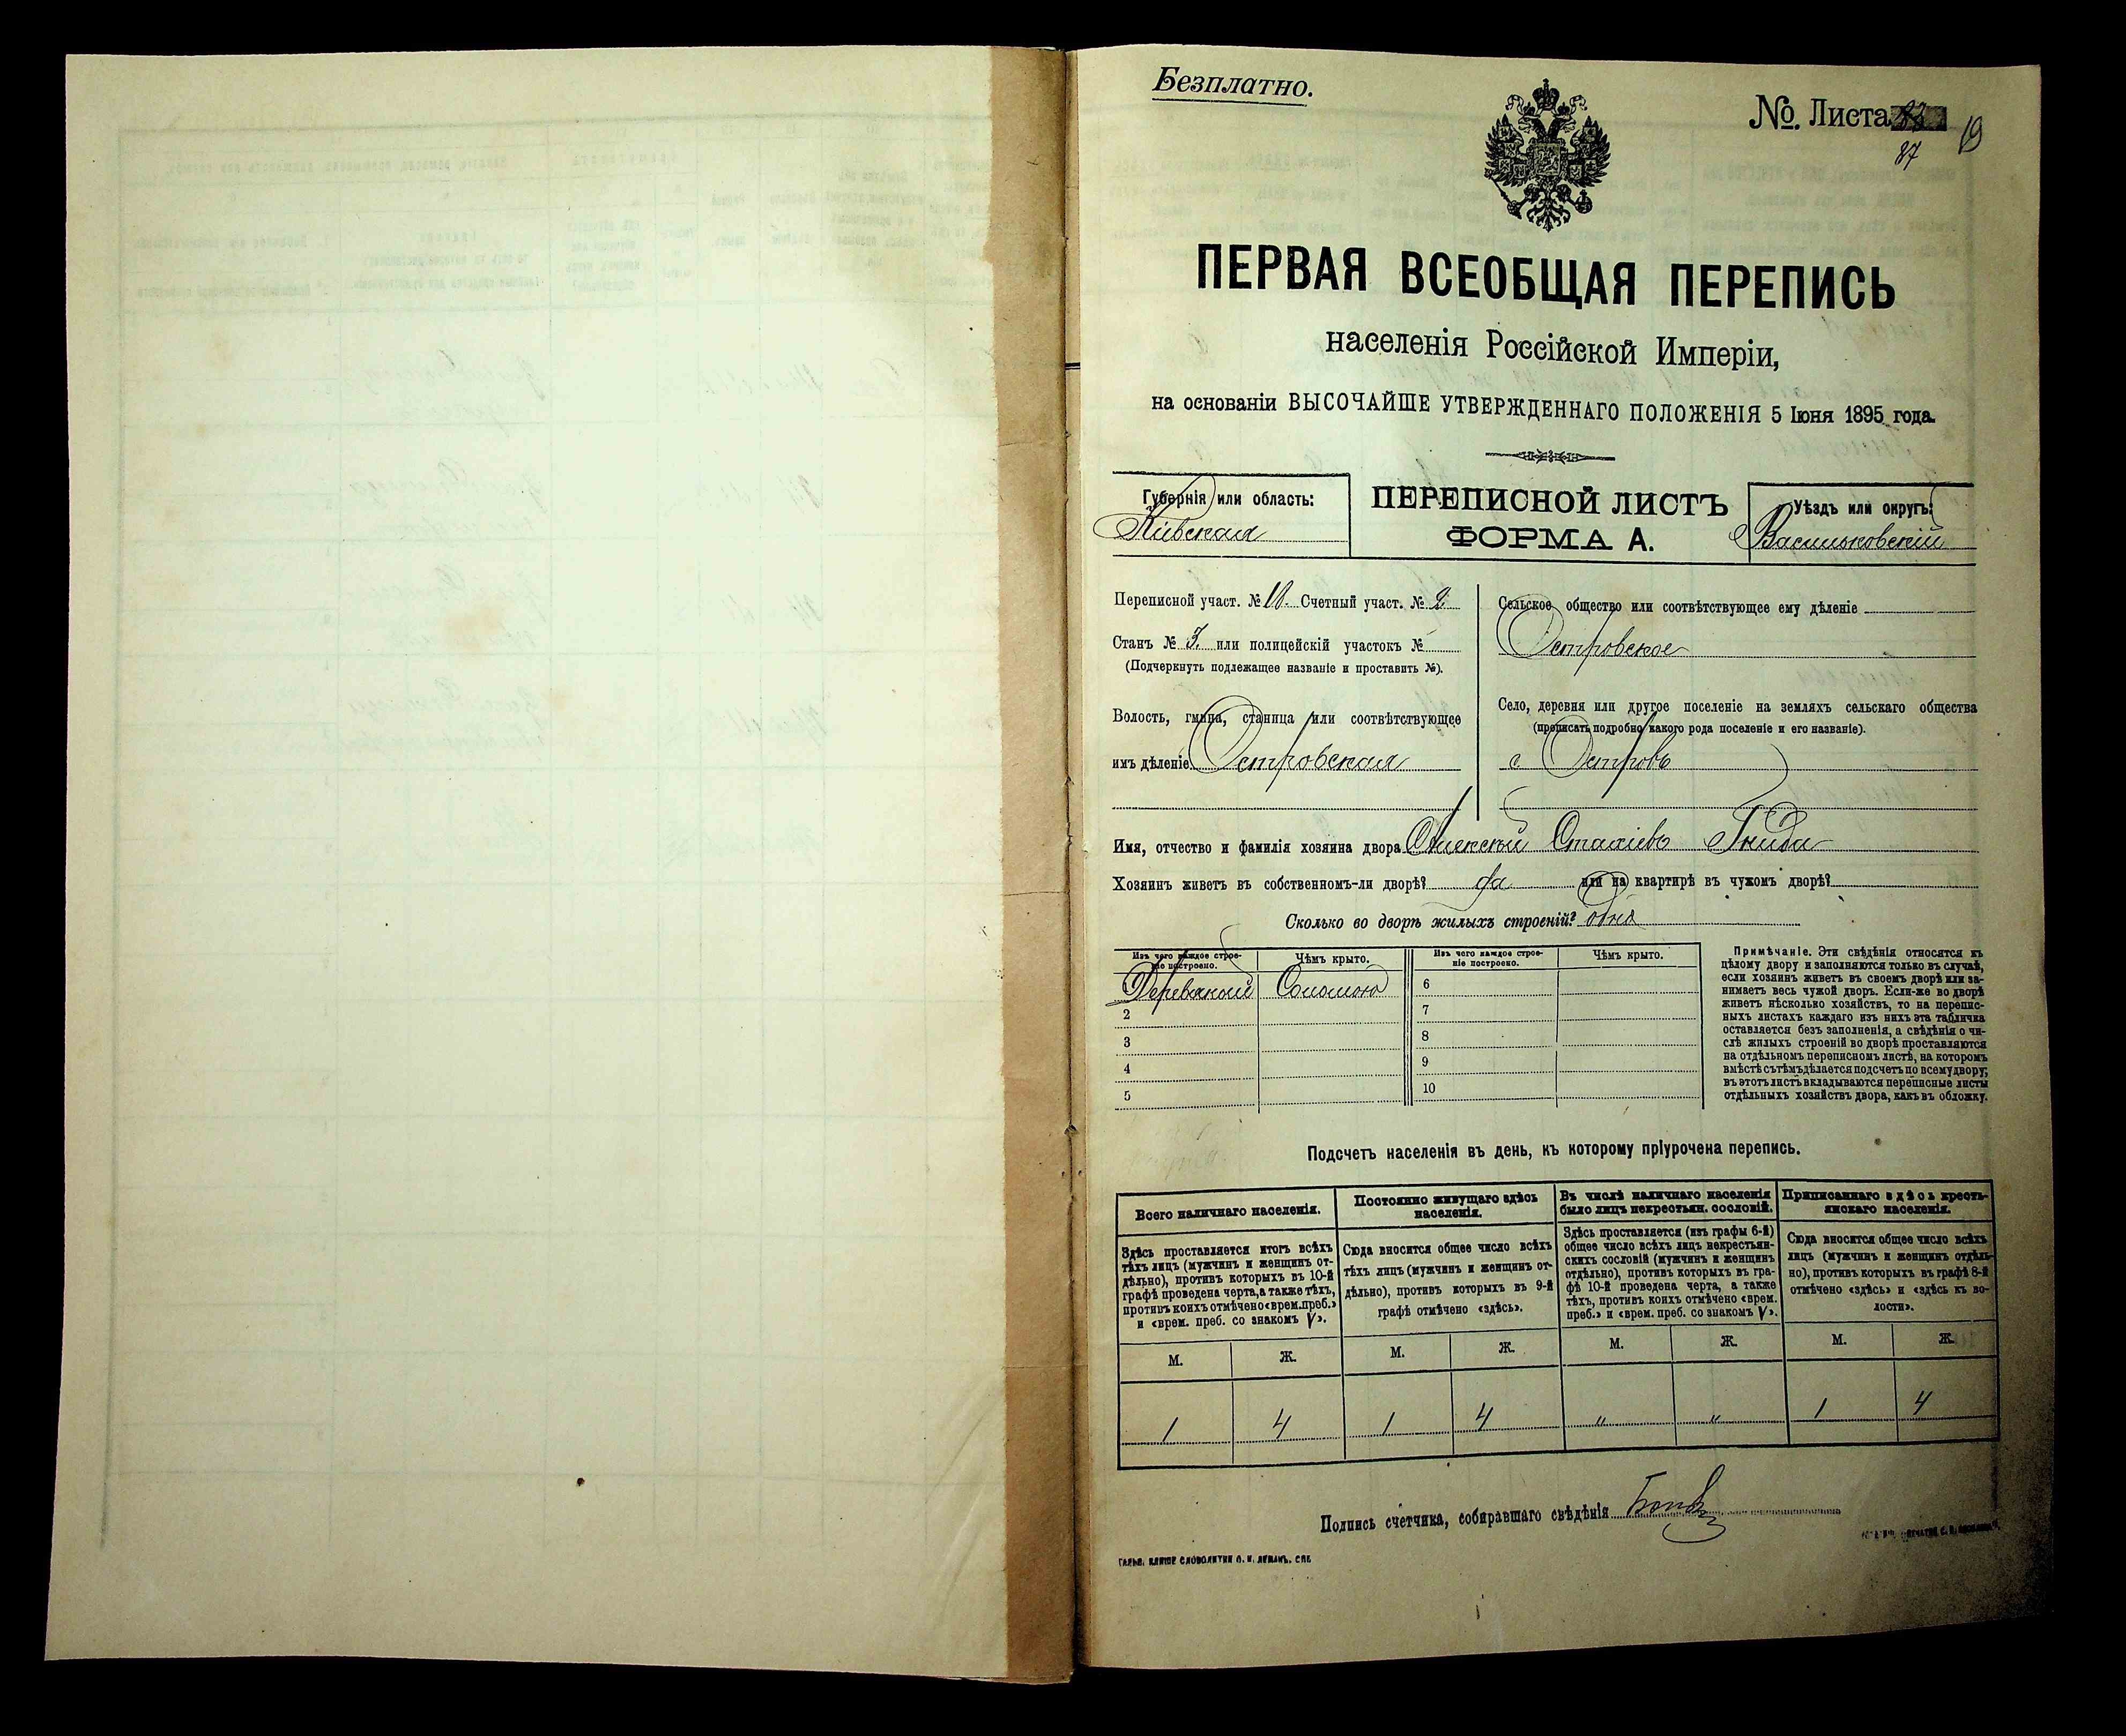 Безплатно.
№. Листа
87
19
ПЕРВАЯ ВСЕОБЩАЯ ПЕРЕПИСЬ
населенія Россійской Имперіи,
на основаніи ВЫСОЧАЙШЕ УТВЕРЖДЕННАГО ПОЛОЖЕНІЯ 5 Іюня 1895 года.
Губернія или область:
Кіевская
ПЕРЕПИСНОЙ ЛИСТЪ
ФОРМА А.
Уѣздъ или округъ:
Васильковскій
Переписной участ. № 10. Счетный участ. № 2
Станъ № 3. или полицейскій участокъ №
(Подчеркнуть подлежащее названіе и проставить №).
Волость, гмина, станица или соотвѣтствующее
имъ дѣленіе Островская
Сельское общество или соотвѣтствующее ему дѣленіе
Островское
Село, деревня или другое поселеніе на земляхъ сельскаго общества
(прописать подробно какого рода поселеніе и его названіе).
с. Островъ
Имя, отчество и фамилія хозяина двора Алексѣй Стахіевъ Гнида
Хозяинъ живетъ въ собственномъ-ли дворѣ? да или на квартирѣ въ чужомъ дворѣ?
Сколько во дворѣ жилыхъ строеній? одна
Изъ чего каждое строе-
ніе построено.
Чѣмъ крыто.
Изъ чего каждое строе-
ніе построено.
Чѣмъ крыто.
Деревяной Соломою
2
3
4
5
6
7
8
9
10
Примѣчаніе. Эти свѣдѣнія относятся къ
цѣлому двору и заполняются только въ случаѣ,
если хозяинъ живетъ въ своемъ дворѣ или за-
нимаетъ весь чужой дворъ. Если-же во дворѣ
живетъ нѣсколько хозяйствъ, то на перепис-
ныхъ листахъ каждаго изъ нихъ эта табличка
оставляется безъ заполненія, а свѣдѣнія о чи-
слѣ жилыхъ строеній во дворѣ проставляются
на отдѣльномъ переписномъ листѣ, на которомъ
вмѣстѣ съ тѣмъ дѣлается подсчетъ по всему двору;
въ этотъ листъ вкладываются переписные листы
отдѣльныхъ хозяйствъ двора, какъ въ обложку.
Подсчетъ населенія въ день, къ которому пріурочена перепись.
Всего наличнаго населенія.
Здѣсь проставляется итогъ всѣхъ
тѣхъ лицъ (мужчинъ и женщинъ от-
дѣльно), противъ которыхъ въ 10-й
графѣ проведена черта, а также тѣхъ,
противъ коихъ отмѣчено «врем. преб.»
и «врем. преб. со знакомъ V».
Постоянно живущаго здѣсь
населенія.
Сюда вносится общее число всѣхъ
тѣхъ лицъ (мужчинъ и женщинъ от-
дѣльно), противъ которыхъ въ 9-й
графѣ отмѣчено «здѣсь».
Въ числѣ наличнаго населенія
было лицъ некрестьян. сословій.
Здѣсь проставляется (изъ графы 6-й)
общее число всѣхъ лицъ некрестьян-
скихъ сословій (мужчинъ и женщинъ
отдѣльно), противъ которыхъ въ гра-
фѣ 10-й проведена черта, а также
тѣхъ, противъ коихъ отмѣчено «врем.
преб.» и «врем. преб. со знакомъ V».
Приписаннаго здѣсь кресть-
янскаго населенія.
Сюда вносится общее число всѣхъ
лицъ (мужчинъ и женщинъ отдѣль-
но), противъ которыхъ въ графѣ 8-й
отмѣчено «здѣсь» и «здѣсь къ во-
лости».
М. Ж. М. Ж. М. Ж. М. Ж.
1 4 1 4 " " 1 4
Подпись счетчика, собиравшаго свѣдѣнія
ГАЛЬВ. КЛИШЕ СЛОВОЛИТНИ О. И. ЛЕМАНЪ. СПБ